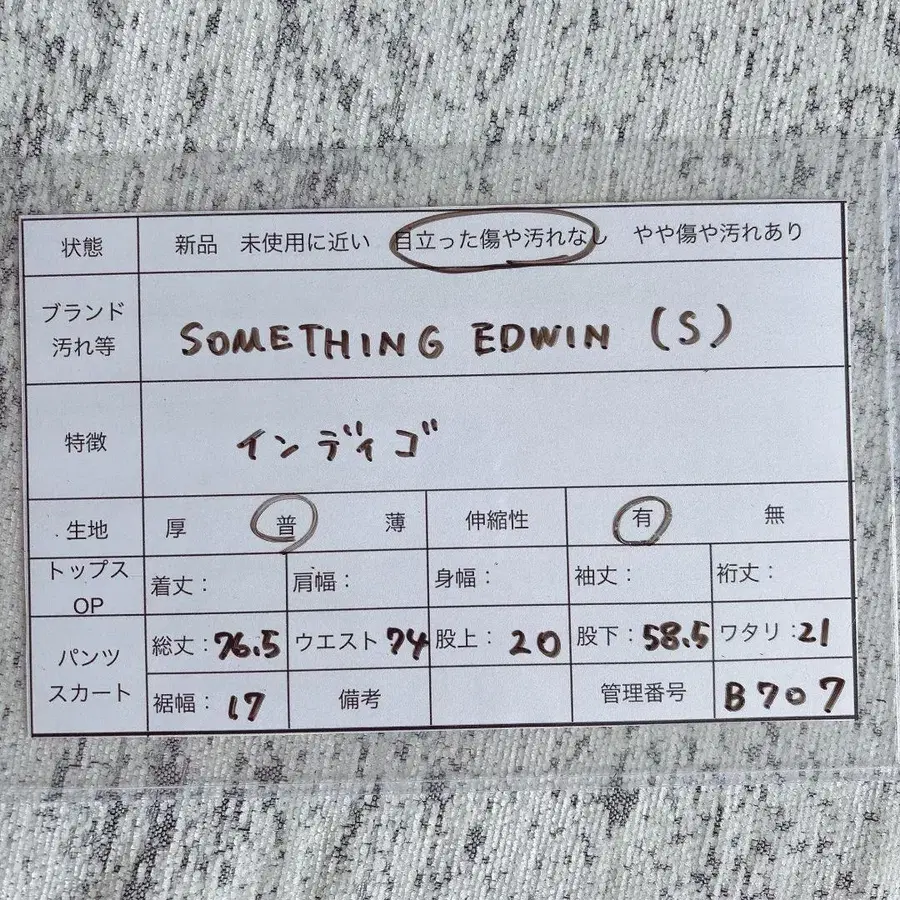 状態 新品 未使用に近い 目立った傷や汚れなし やや傷や汚れあり
ブランド
汚れ等
SOMETHING EDWIN (S)
特徴 インディゴ
生地 厚 普 薄 伸縮性 有 無
トップス
OP
着丈: 肩幅: 身幅: 袖丈: 裄丈:
パンツ
スカート
総丈:76.5 ウエスト 74 股上: 20 股下:58.5 ワタリ:21
裾幅: 17 備考 管理番号 B707